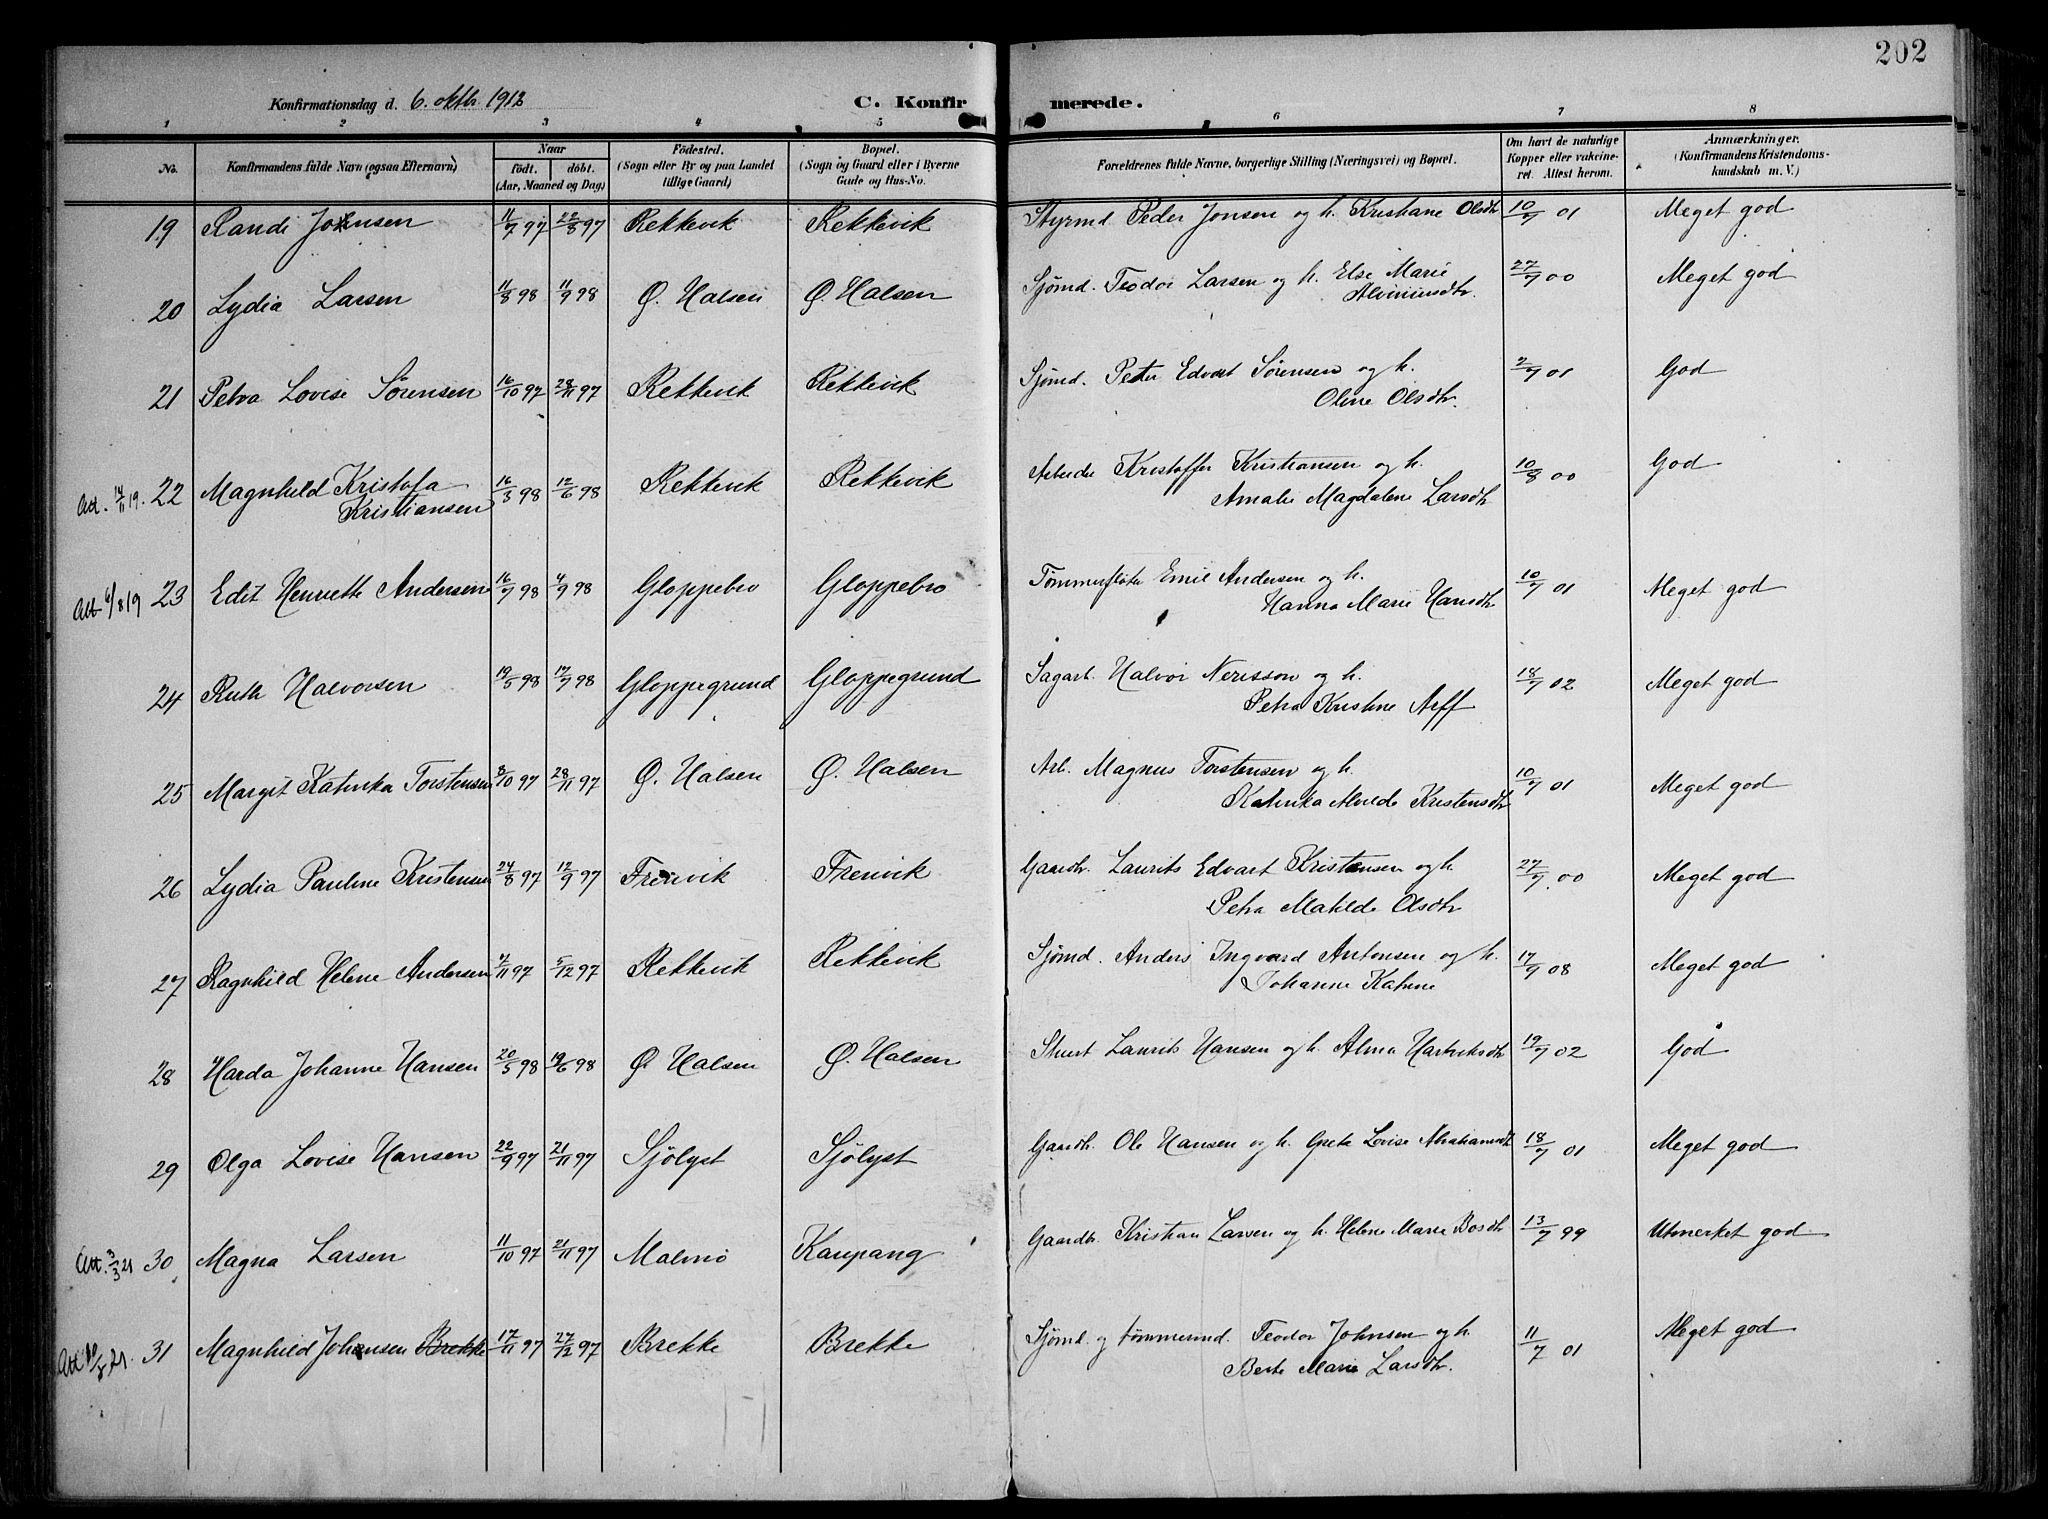 202
Konfirmationsdag d. 6. oktb. 1912
C. Konfirmerede.
1 2 3 4 5 6 7 8
No. Konfirmandens fulde Navn (ogsaa Efternavn) Naar født. døbt. (Aar, Maaned og Dag) Fødested. (Sogn eller By og paa Landet tillige Gaard) Bopæl. (Sogn og Gaard eller i Byerne Gade og Hus-No. Forældrenes fulde Navne, borgerlige Stilling (Næringsvei) og Bopæl. Om havt de naturlige Kopper eller vakcineret. Attest herom. Anmærkninger. (Konfirmandens Kristendomskundskab m. V.)
19 Randi Johnsen 11/7 97 22/8 97 Rekkevik Rekkevik Styrmd. Peder Jonsen og h. Kristiane Olsdtr 10/7 01 Meget god
20 Lydia Larsen 11/8 98 11/9 98 Ø. Halsen Ø. Halsen Sjømd. Teodor Larsen og h. Else Marie
Alviniusdtr. 27/7 00 Meget god
21 Petra Lovise Sørensen 16/10 97 28/11 97 Rekkevik Rekkevik Sjømd. Peter Edvart Sørensen og h.
Oline Olsdtr. 2/7 01 God
Att. 14/11 19. 22 Magnhild Kristofa
Kristiansen 16/3 98 12/6 98 Rekkevik Rekkevik Arbeider Kristoffer Kristiansen og h.
Amalie Magdalene Larsdtr 10/8 00 God
Att 6/8 19 23 Edit Henriette Andersen 16/7 98 4/9 98 Gloppebro Gloppebro Tømmerfløter Emil Andersen og h.
Hanna Marie Hansdtr 10/7 01 Meget god
24 Ruth Halvorsen 19/5 98 17/7 98 Gloppegrund Gloppegrund Sagarb. Halvor Nerisson og h.
Petra Kristine Arff 18/7 02 Meget god
25 Margit Katinka Torstensen 8/10 97 28/11 97 Ø. Halsen Ø. Halsen Arb. Magnus Torstensen og h.
Katinka Alvilde Kristensdtr 10/7 01 Meget god
26 Lydia Pauline Kristensen 24/8 97 12/9 97 Freivik Freivik Gaardbr. Laurits Edvart Kristensen og h.
Petra Matilde Olsdtr 27/7 00 Meget god
27 Ragnhild Helene Andersen 4/11 97 5/12 97 Rekkevik Rekkevik Sjømd. Anders Ingvard Antonsen og h.
Johanne Katrine 17/9 08 Meget god
28 Harda Johanne Hansen 20/5 98 19/6 98 Ø. Halsen Ø. Halsen Stuert Laurits Hansen og h. Alma Hartviksdtr 19/7 02 God
29 Olga Lovise Hansen 22/9 97 21/11 97 Sjølyst Sjølyst Gaardbr. Ole Hansen og h. Grete Lovise Abrahamsdtr 18/7 01 Meget god
Att. 3/3 21 30 Magna Larsen 11/10 97 21/11 97 Malmø Kaupang Gaardbr. Kristian Larsen og h. Helene Marie Bosdtr 13/7 99 Utmerket god
Att 21. 31 Magnhild Johnsen Brekke 17/11 97 27/12 97 Brekke Brekke Sjømd. og tømmermd. Teodor Johnsen og h.
Berte Marie Larsdtr. 11/7 01 Meget god